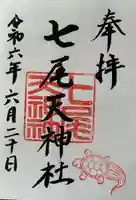 奉拝
七尾天神社
令和六年六月二十日